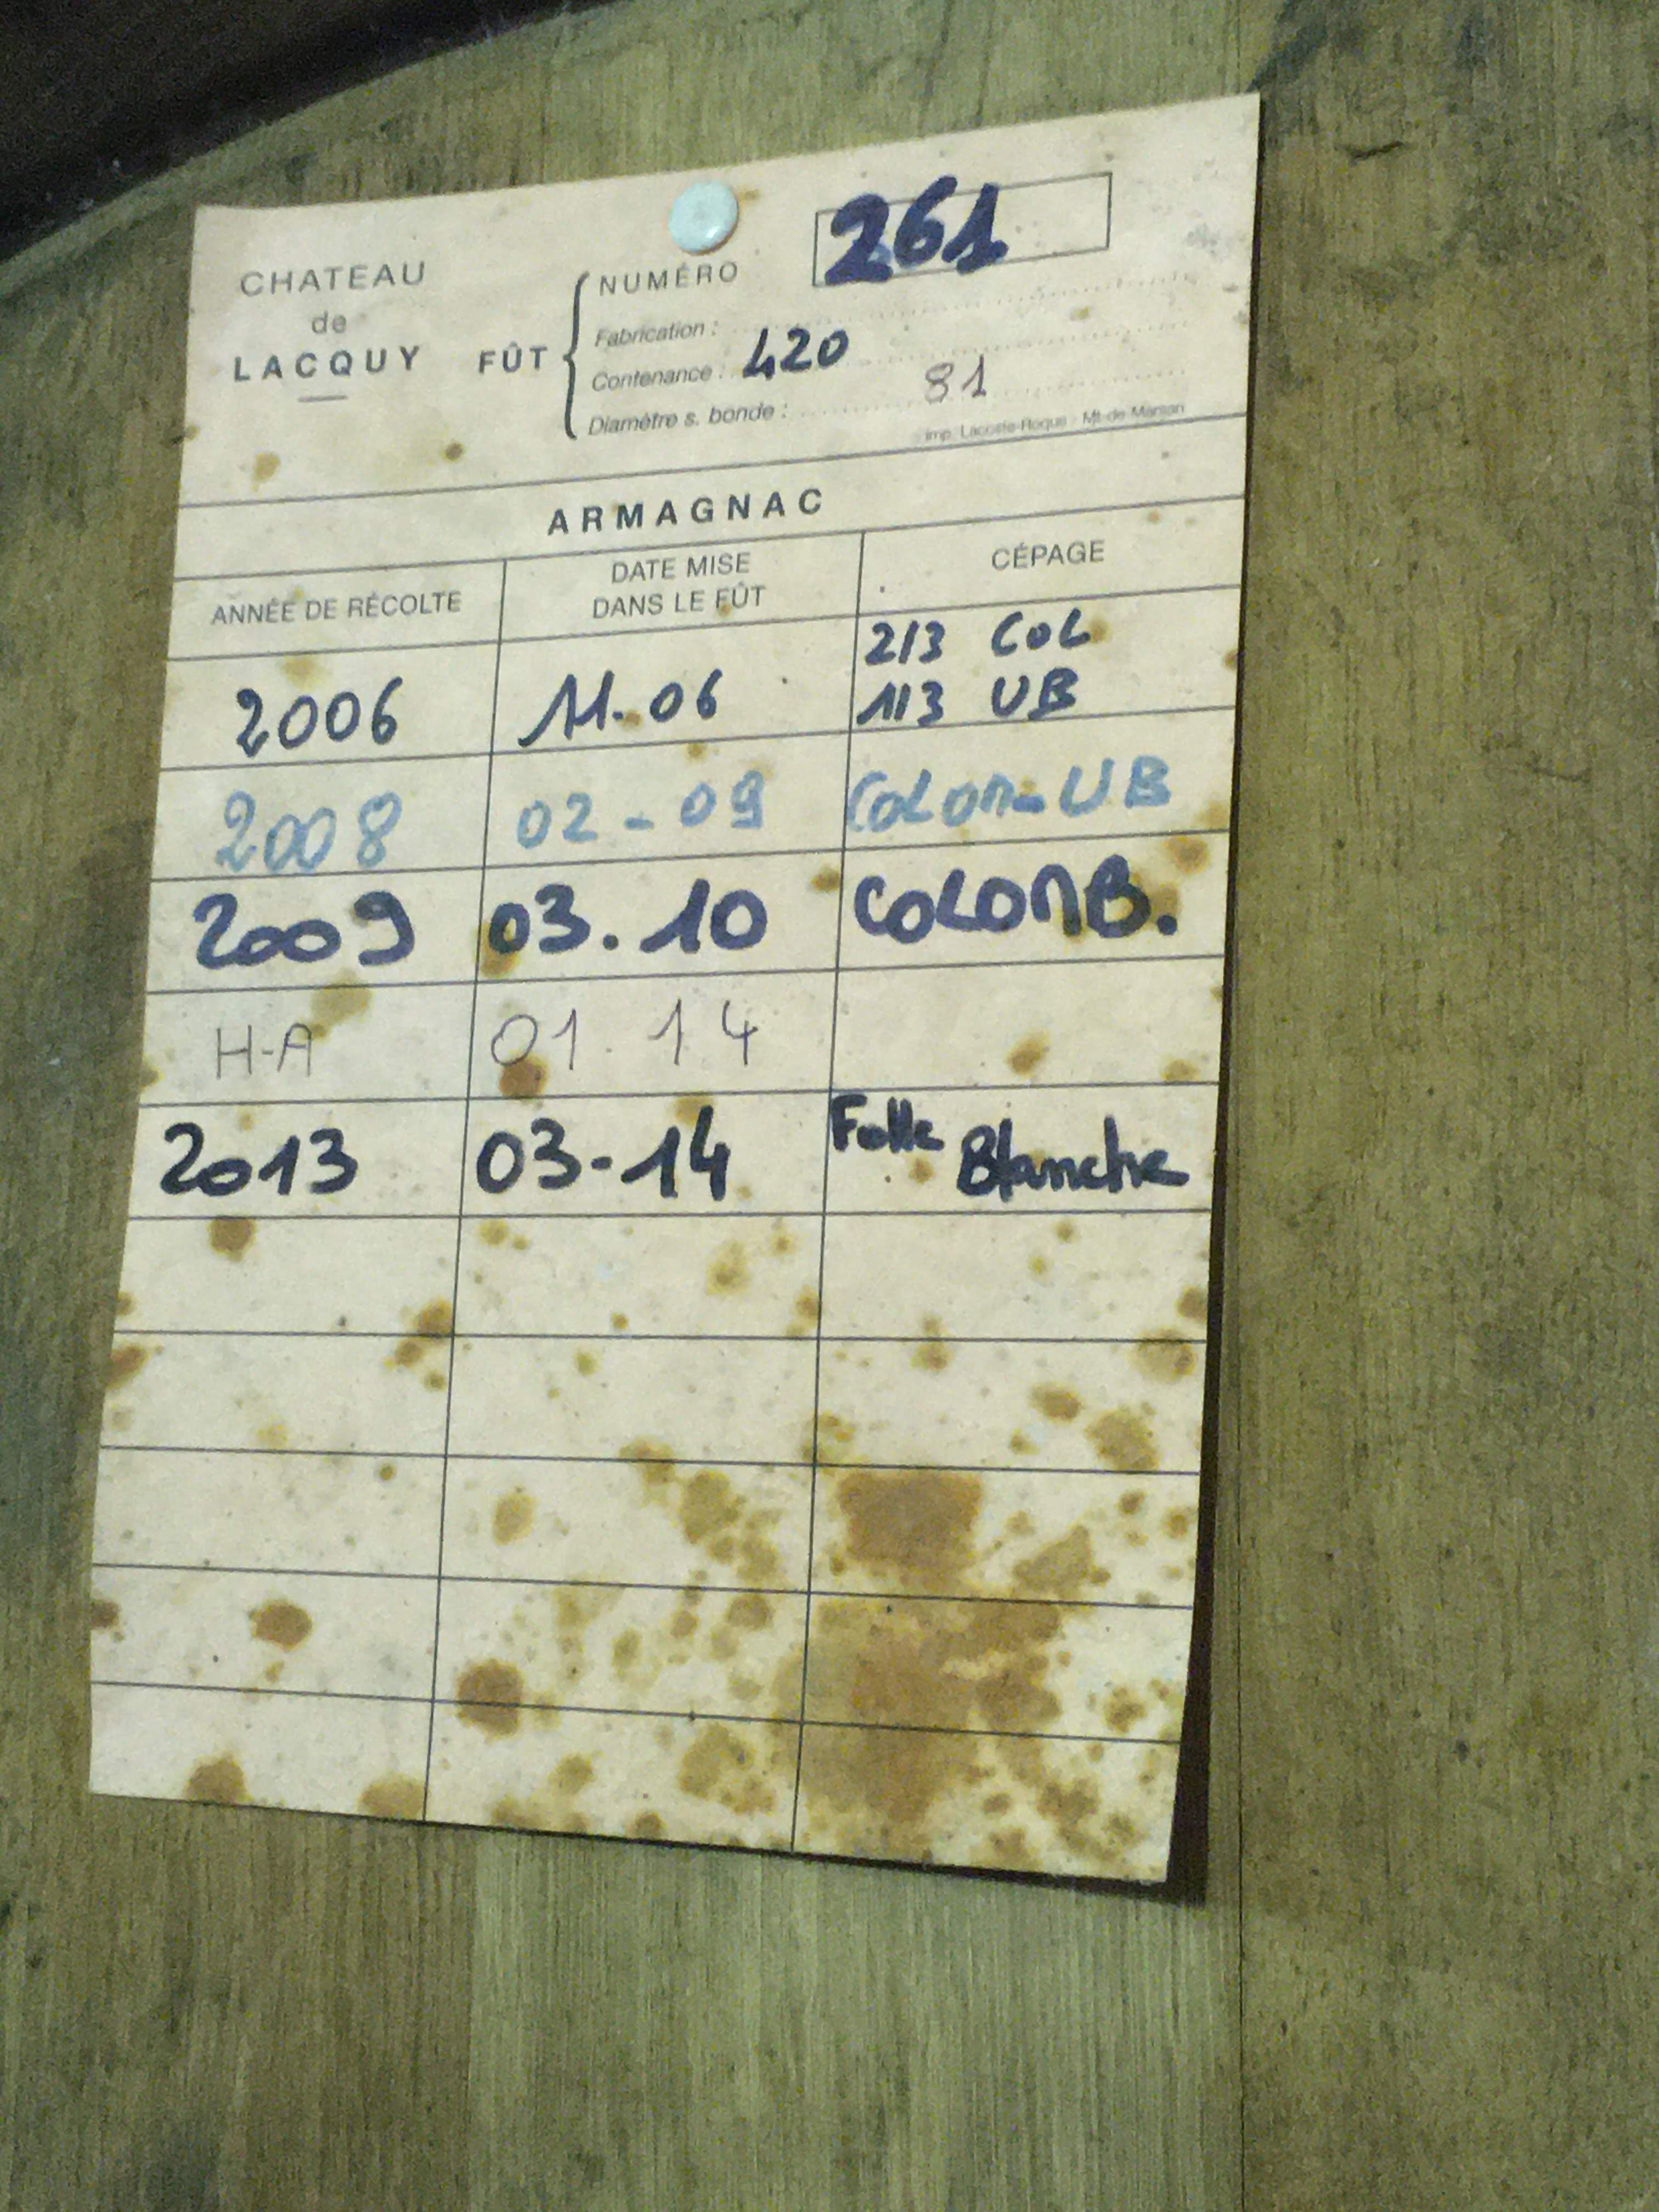 CHATEAU
de
LACQUY
FÛT
NUMÉRO 261
Fabrication :
Contenance : 420
Diamètre s. bonde : 81
Imp. Lacoste-Roque - Mt-de-Marsan
ARMAGNAC
ANNÉE DE RÉCOLTE DATE MISE DANS LE FÛT CÉPAGE
2006 11.06 2/3 COL
1/3 UB
2008 02-09 COLOM-UB
2009 03.10 COLOMB.
H-A 01.14
2013 03-14 Folle Blanche